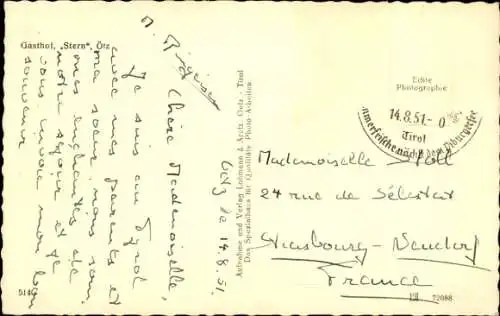 Gasthof, „Stern“, Ötz
Oetz le 14.8.51.
Chère Mademoiselle,
Je suis au Tyrol
avec mes parents et
ma soeur. nous sommes
enchantées de
notre séjour et je
vous envoie mon bon
souvenir
Aufnahme und Verlag Lohmann & Arnz, Oetz - Tirol
Das Spezialhaus für Qualitäts Photo-Arbeiten
Echte
Photographie
14.8.51.
Tirol
Mademoiselle Stoll
27 rue de Sélestat
Strasbourg-Neudorf
France
514
72088